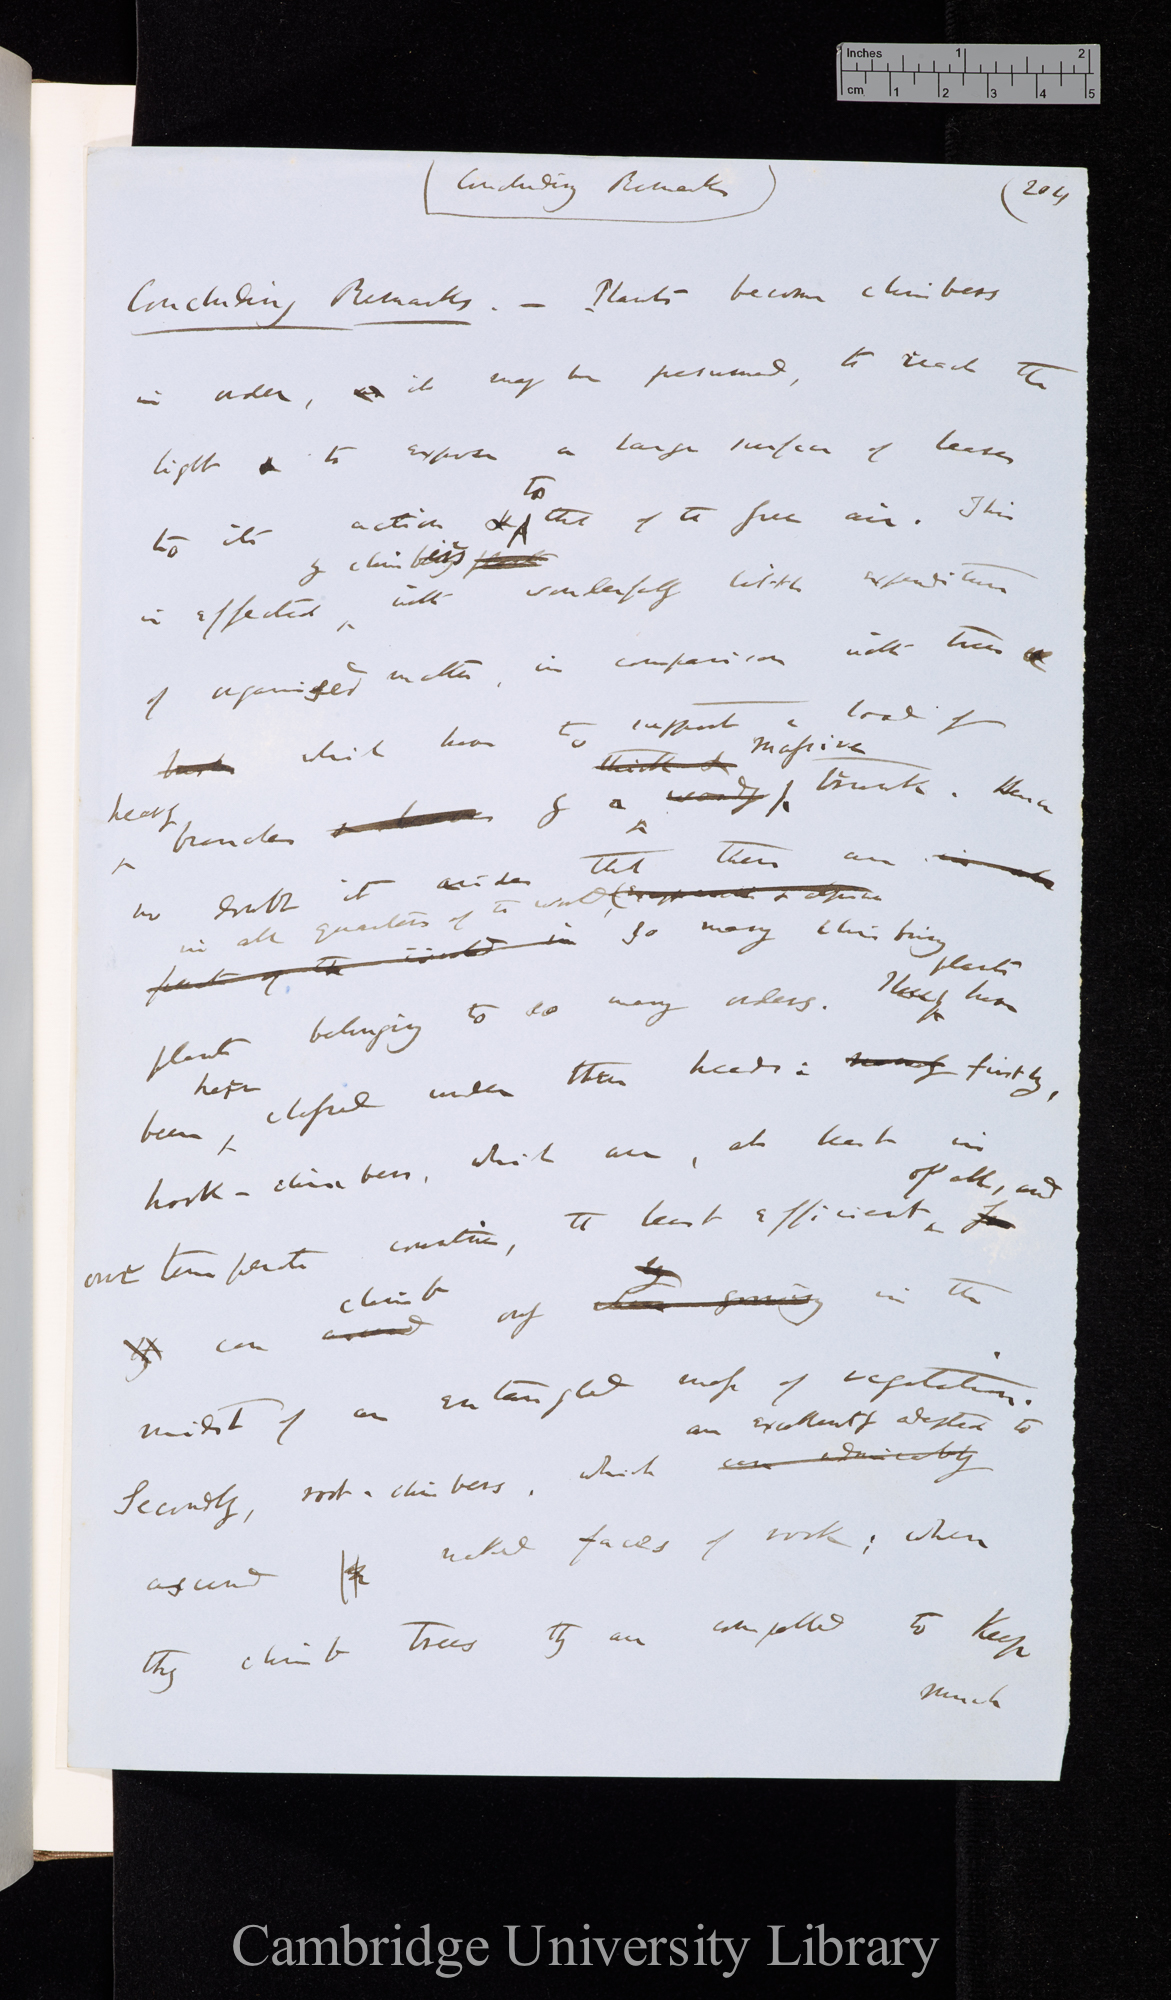 Inches 1 2
cm 1 2 3 4 5
Concluding Remarks (204
Concluding Remarks. — Plants become climbers
in order, it may be presumed, to reach the
light & to expose a large surface of leaves
to
to its action & that of the free air. This
by climbers
is effected with wonderfully little expenditure
of organised matter, in comparison with trees
which have to support a load of
massive
thick &
heavy
branches by a woody trunk. Hence
no doubt it arises that there are
in all quarters of the world
part of the world in so many climbing
plants
plants belonging to so many orders. These have
here
been classed under three heads: firstly,
hook-climbers, which are, at least in
of all, and
our temperate countries, the least efficient,
climb
can ascend only when growing in the
midst of an entangled mass of vegetation.
are excellently adapted to
Secondly, root-climbers, which can admirably
ascend naked faces of rock; when
they climb trees they are compelled to keep
much
Cambridge University Library